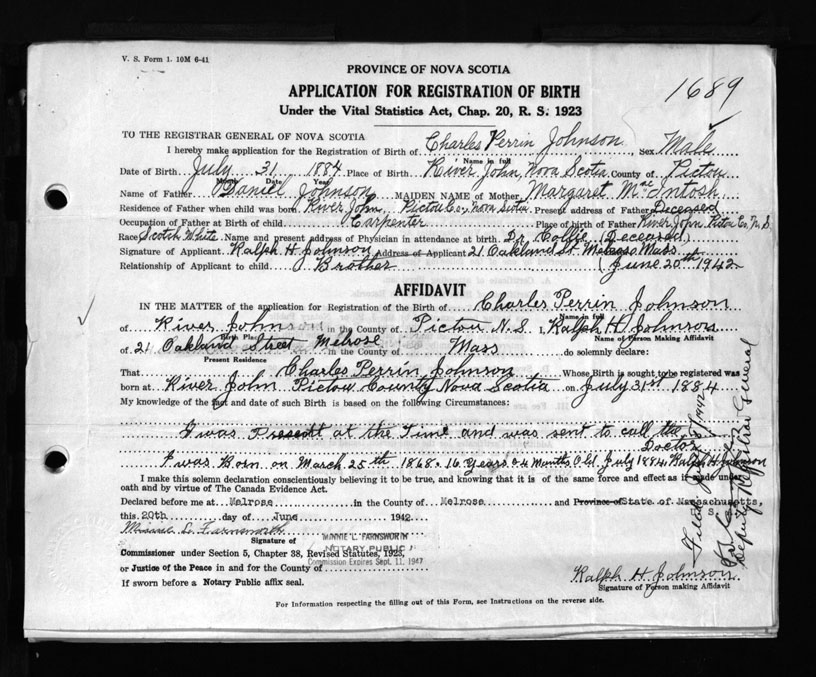 V. S. Form 1. 10M 6-41
PROVINCE OF NOVA SCOTIA
1689
APPLICATION FOR REGISTRATION OF BIRTH
Under the Vital Statistics Act, Chap. 20, R. S. 1923
TO THE REGISTRAR GENERAL OF NOVA SCOTIA
I hereby make application for the Registration of Birth of Charles Perrin Johnson, Sex Male
Name in full
Date of Birth July 31 1884 Place of Birth River John, Nova Scotia County of Pictou
Date Year
Name of Father Daniel Johnson MAIDEN NAME of Mother Margaret McIntosh
Residence of Father when child was born River John, Pictou Co., Nova Scotia Present address of Father Deceased
Occupation of Father at Birth of child Carpenter Place of birth of Father River John Pictou Co. N. S.
Race Scotch White Name and present address of Physician in attendance at birth. Dr. Collie (Deceased)
Signature of Applicant. Ralph H Johnson Address of Applicant 21 Oakland St. Melrose, Mass
Relationship of Applicant to child Brother (June 20th 1942
AFFIDAVIT
IN THE MATTER of the application for Registration of the Birth of Charles Perrin Johnson
Name in full
of River Johnson in the County of Pictou N.S. I, Ralph H Johnson
Birth Place Name of Person Making Affidavit
of 21 Oakland Street Melrose in the County of Mass do solemnly declare:
Present Residence
That Charles Perrin Johnson Whose Birth is sought to be registered was
born at River John Pictou County Nova Scotia on July 31st 1884
My knowledge of the fact and date of such Birth is based on the following Circumstances:
I was Present at the Time and was sent to call the
Doctor
I was Born on March 25th 1868. 16 Years & 4 Months Old July 1884 Ralph H Johnson
I make this solemn declaration conscientiously believing it to be true, and knowing that it is of the same force and effect as if made under
oath and by virtue of The Canada Evidence Act.
Declared before me at Melrose in the County of Melrose and Province of State of Massachusetts,
this 20th day of June 1942
Minnie L. Farnsworth
Signature of
MINNIE L. FARNSWORTH
NOTARY PUBLIC
Commission Expires Sept. 11, 1947
Commissioner under Section 5, Chapter 38, Revised Statutes, 1923,
or Justice of the Peace in and for the County of
If sworn before a Notary Public affix seal.
Ralph H Johnson
Signature of Person making Affidavit
For Information respecting the filling out of this Form, see Instructions on the reverse side.
Filed 1942
Deputy Registrar General